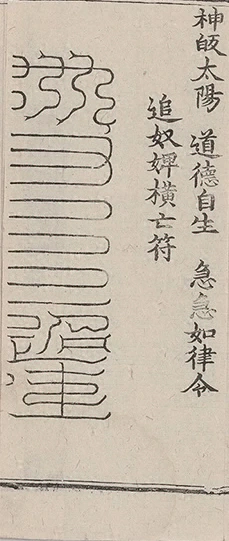 神皈太陽 道德自生 急急如律令
追奴婢橫亡符